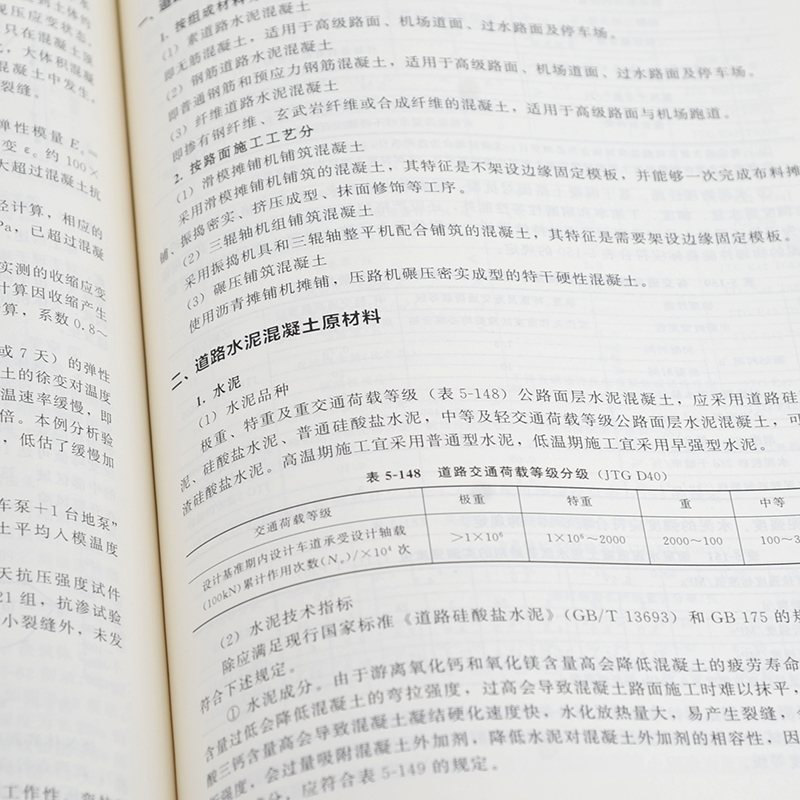 土体的
现压应变状态，
只在混凝土浇
，大体积混凝
混凝土中发生，
裂缝。
弹性模量 E
变 εc 约 100×
大超过混凝土抗
经计算，相应的
Pa，已超过混凝
实测的收缩应变
计算因收缩产生
算，系数 0.8～
或 7 天）的弹性
土的徐变对温度
温速率缓慢，即
倍。本例分析验
，低估了缓慢加
车泵＋1 台地泵”
土平均入模温度
天抗压强度试件
21 组，抗渗试验
小裂缝外，未发
工作性，
1. 按组成材料
（1）素道路水泥混凝土
即无筋混凝土，适用于高级路面、机场道面、过水路面及停车场。
（2）钢筋道路水泥混凝土
即普通钢筋和预应力钢筋混凝土，适用于高级路面、机场道面、过水路面及停车场。
（3）纤维道路水泥混凝土
即掺有钢纤维、玄武岩纤维或合成纤维的混凝土，适用于高级路面与机场跑道。
2. 按路面施工工艺分
（1）滑模摊铺机铺筑混凝土
采用滑模摊铺机铺筑的混凝土，其特征是不架设边缘固定模板，并能够一次完成布料摊
铺、振捣密实、挤压成型、抹面修饰等工序。
（2）三辊轴机组铺筑混凝土
采用振捣机具和三辊轴整平机配合铺筑的混凝土，其特征是需要架设边缘固定模板。
（3）碾压铺筑混凝土
使用沥青摊铺机摊铺，压路机碾压密实成型的特干硬性混凝土。
二、道路水泥混凝土原材料
1. 水泥
（1）水泥品种
极重、特重及重交通荷载等级（表 5-148）公路面层水泥混凝土，应采用道路硅
泥、硅酸盐水泥、普通硅酸盐水泥，中等及轻交通荷载等级公路面层水泥混凝土，可
渣硅酸盐水泥。高温期施工宜采用普通型水泥，低温期施工宜采用早强型水泥。
表 5-148 道路交通荷载等级分级（JTG D40）
交通荷载等级 极重 特重 重 中等
设计基准期内设计车道承受设计轴载
(100kN)累计作用次数(Ne)/×10⁴ 次 ＞1×10⁶ 1×10⁶～2000 2000～100 100～3
（2）水泥技术指标
除应满足现行国家标准《道路硅酸盐水泥》（GB/T 13693）和 GB 175 的规
符合下述规定。
① 水泥成分。由于游离氧化钙和氧化镁含量高会降低混凝土的疲劳寿命
含量过低会降低混凝土的弯拉强度，过高会导致混凝土路面施工时难以抹平，
酸三钙含量高会导致混凝土凝结硬化速度快，水化放热量大，易产生裂缝，
强度，会过量吸附混凝土外加剂，降低水泥对混凝土外加剂的相容性，因
成分，应符合表 5-149 的规定。